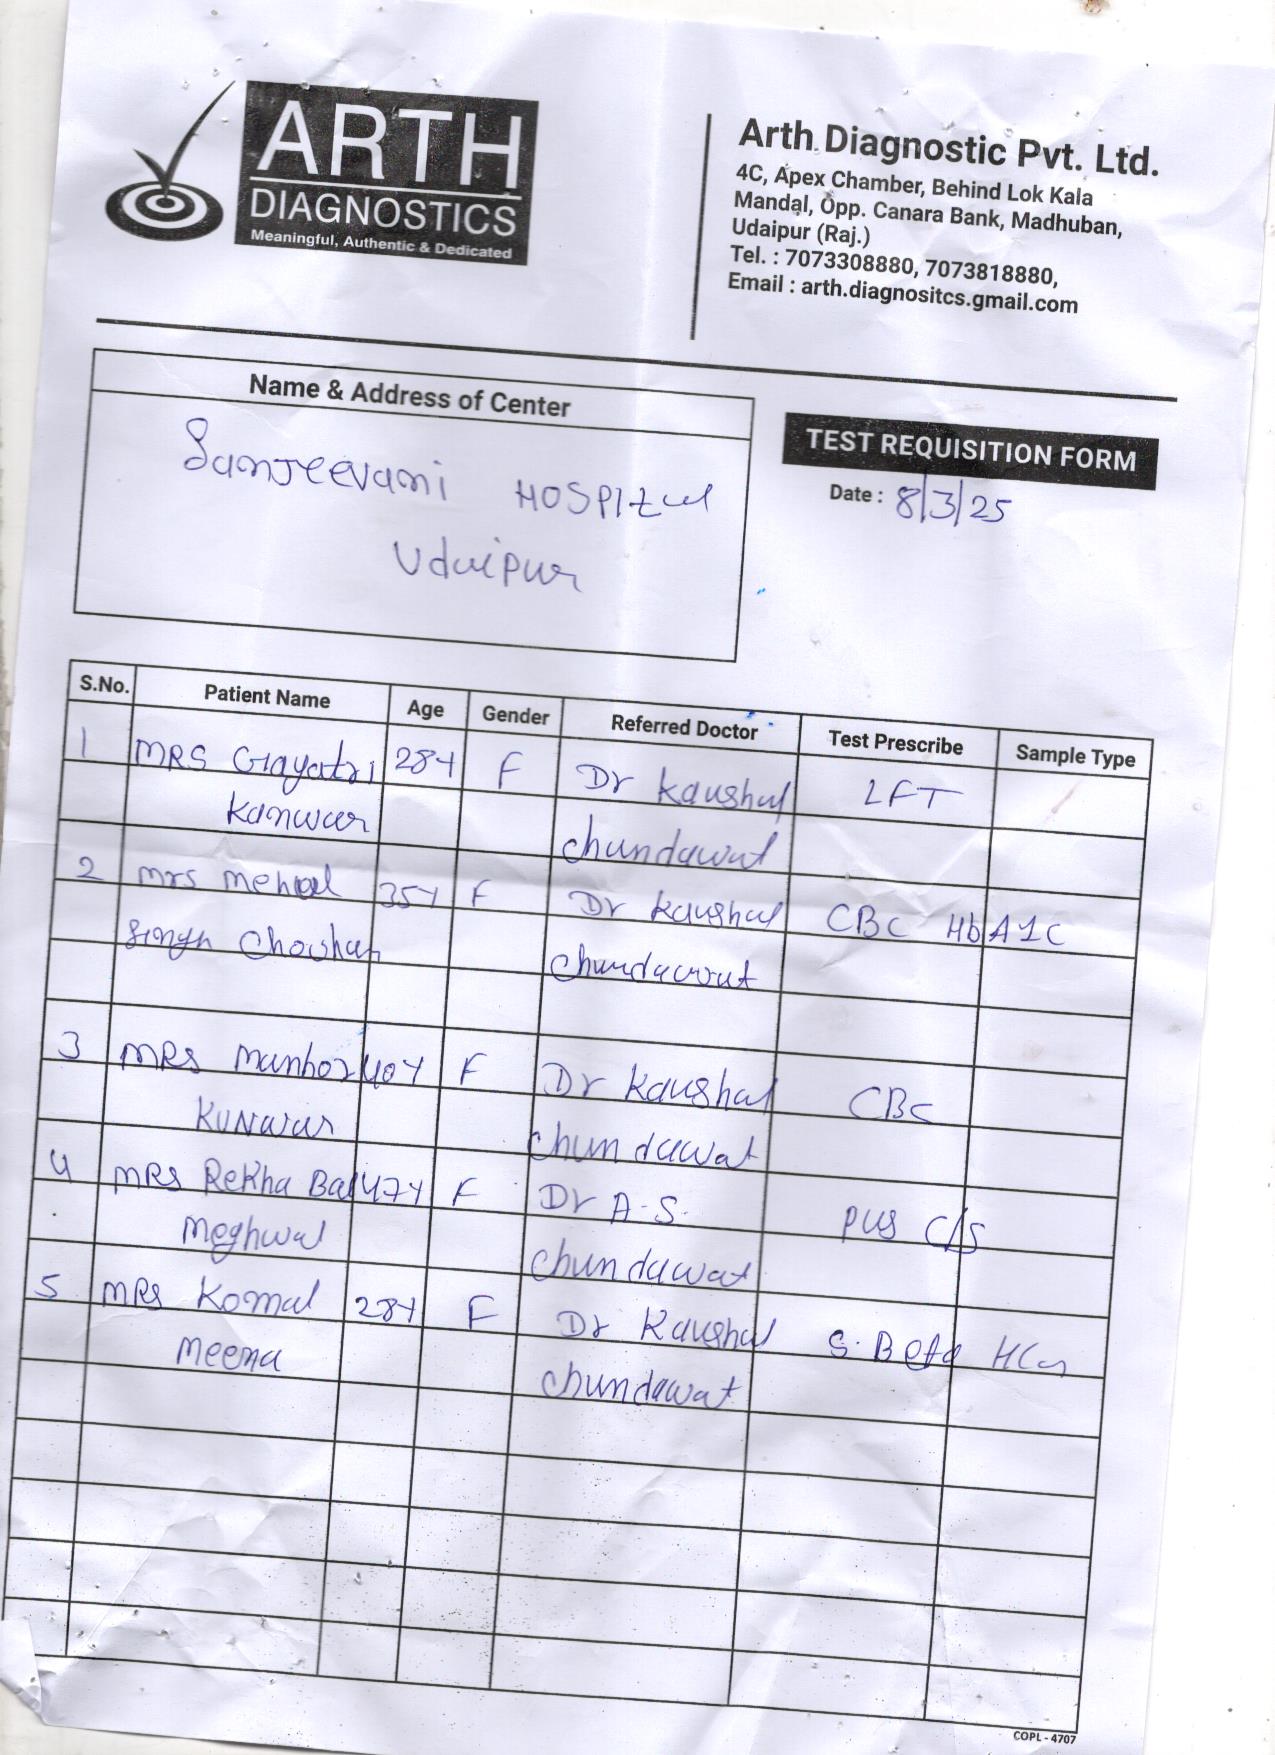 ARTH
DIAGNOSTICS
Meaningful, Authentic & Dedicated
Arth Diagnostic Pvt. Ltd.
4C, Apex Chamber, Behind Lok Kala
Mandal, Opp. Canara Bank, Madhuban,
Udaipur (Raj.)
Tel. : 7073308880, 7073818880,
Email : arth.diagnositcs.gmail.com
Name & Address of Center
Sanjeevani HOSPITal
Udaipur
TEST REQUISITION FORM
Date : 8/3/25
S.No. Patient Name Age Gender Referred Doctor Test Prescribe Sample Type
1 MRS Gayatri 28Y F Dr Kaushal LFT
Kanwar Chundawat
2 Mrs 35Y F Dr Kaushal CBC HbA1C
Singh Chouhan Chundawat
3 MRS Manhor 40Y F Dr Kaushal CBC
Kunwar Chundawat
4 MRS Rekha Bai 47Y F Dr A.S. Pus C/S
Meghwal Chundawat
5 MRS Komal 28Y F Dr Kaushal S. Beta HCG
Meena Chundawat
COPL - 4707